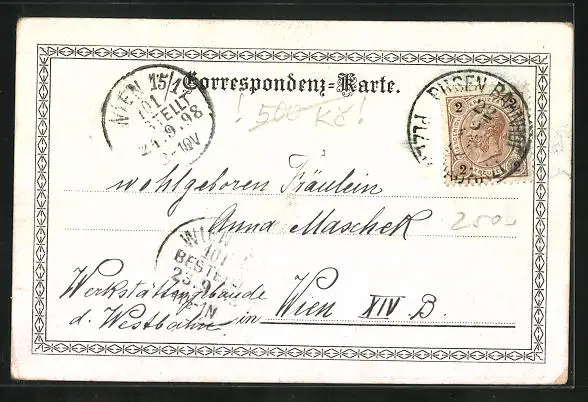 Correspondenz-Karte.
WIEN 15/1
101
BESTELLT
9.98
! 500 Kč !
PILSEN BAHNHOF
2
2
wohlgeboren Fräulein
Anna Maschek
2500
WIEN
101
BESTELLT
23.9
Werkstättengebäude
d. Westbahn in Wien XIV B.